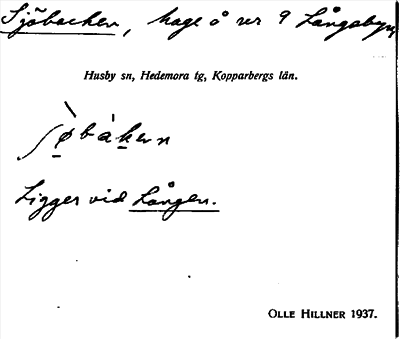 Sjöbacken, hage å nr 9 Långsbyn
Husby sn, Hedemora tg, Kopparbergs län.
ʃø̠̀bák̠ern
Ligger vid Lången.
OLLE HILLNER 1937.